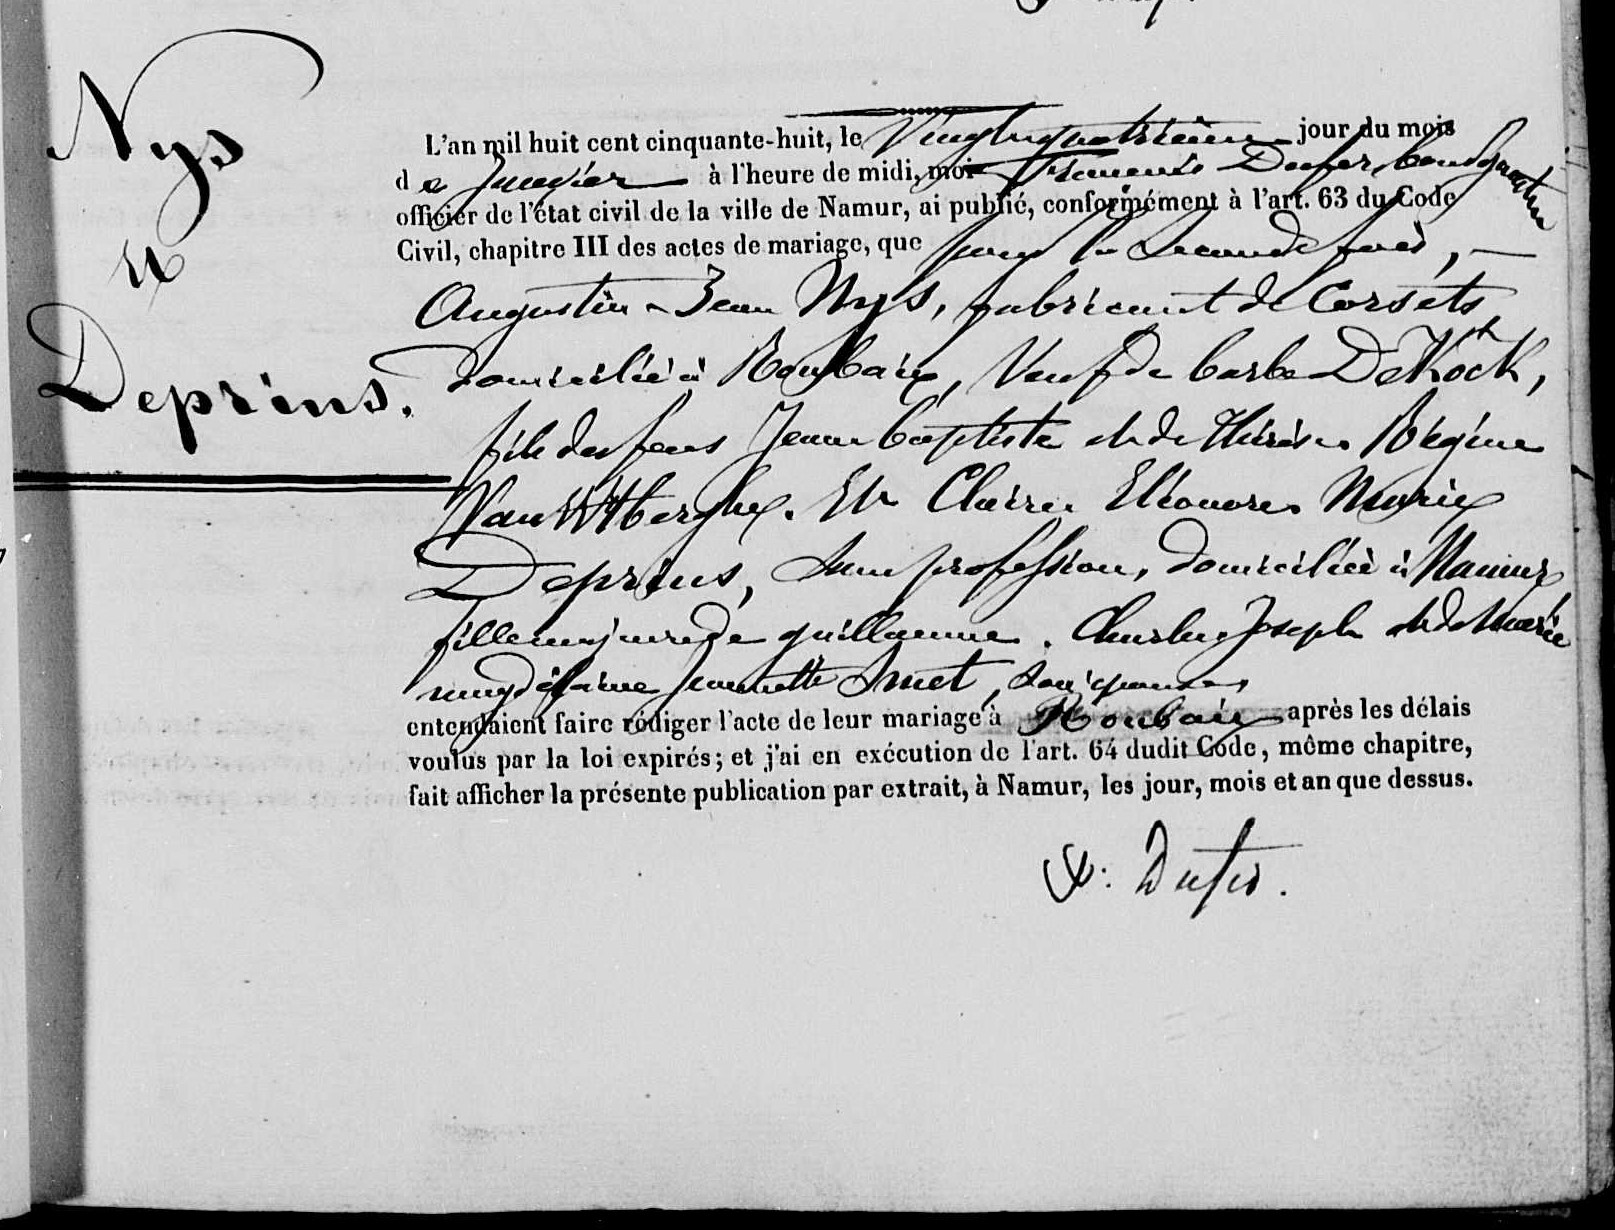 Nys
et
Deprins.
L'an mil huit cent cinquante-huit, le Vingtquatrième jour du mois
de Janvier à l'heure de midi, moi François Dufer, bourgmestre
officier de l'état civil de la ville de Namur, ai publié, conformément à l'art. 63 du Code
Civil, chapitre III des actes de mariage, que pour la seconde fois,
Augustin-Jean Nys, fabricant de Corsets,
domicilié à Roubaix, Veuf de barbe DeKock,
fils des feus Jean baptiste et de Thérèse Régine
Et Claire Eléonore Marie
Deprins, sans profession, domiciliée à Namur
fille majeure de guillaume Charles Joseph et de Marie
magdelaine Jeannette Smet, son épouse,
entendaient faire rédiger l'acte de leur mariage à Roubaix après les délais
voulus par la loi expirés; et j'ai en exécution de l'art. 64 dudit Code, même chapitre,
fait afficher la présente publication par extrait, à Namur, les jour, mois et an que dessus.
Dufer.